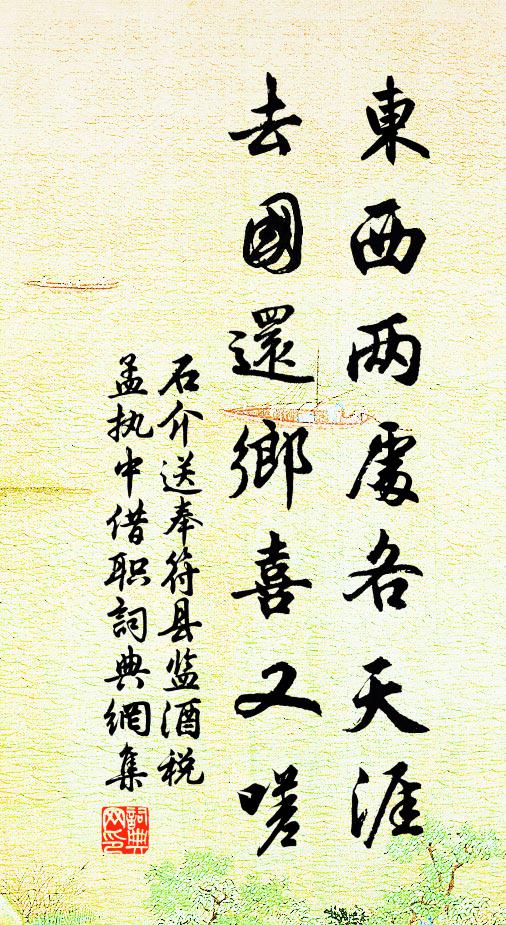 東西两處各天涯
去國還鄉喜又嗟
石介送奉符县监酒税
孟执中借职詞典網集
詞典网印